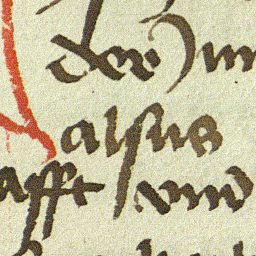 der jun
alsus
afft vnd